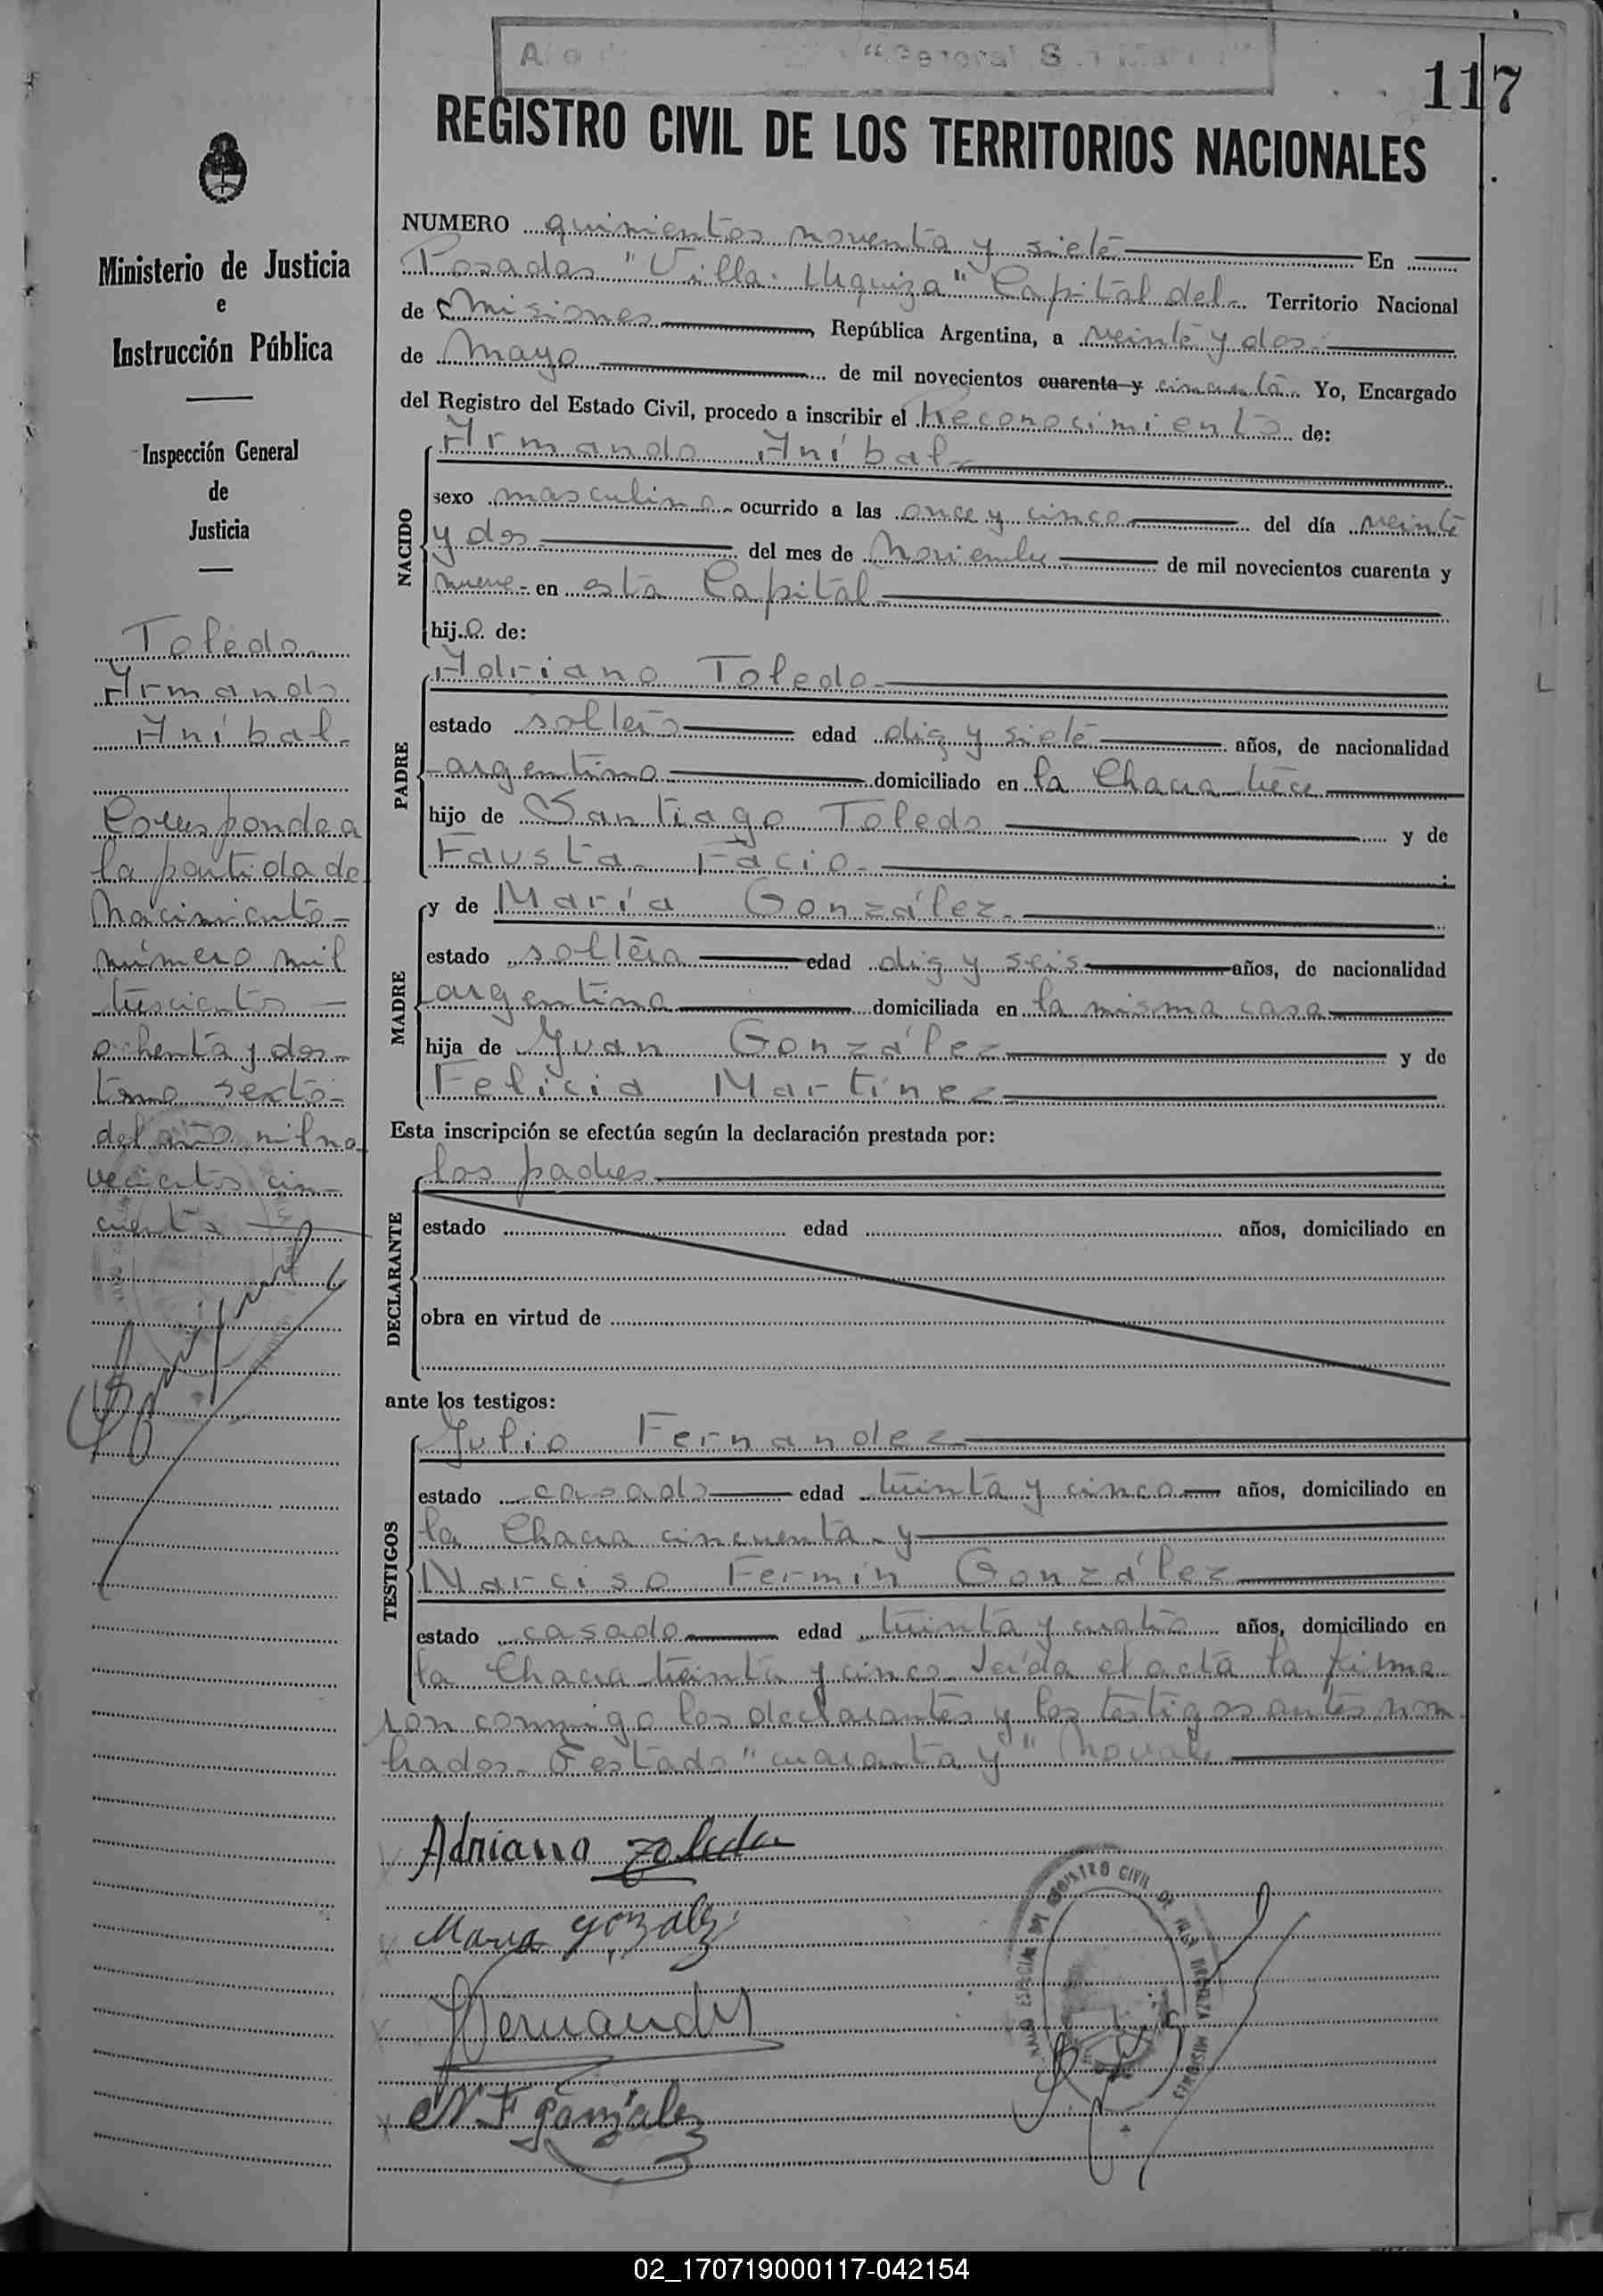 117
REGISTRO CIVIL DE LOS TERRITORIOS NACIONALES
Ministerio de Justicia
e
Instrucción Pública
Inspección General
de
Justicia
Toledo
Armando
Aníbal
Corresponde a
la partida de
Nacimiento
número mil
trescientos
ochenta y dos
tomo sexto
del año mil no
vecientos cin
cuenta
NUMERO quinientos noventa y siete En
Posadas "Villa Urquiza" Capital del Territorio Nacional
de Misiones, República Argentina, a veinte y dos
de Mayo de mil novecientos cuarenta y cincuenta. Yo, Encargado
del Registro del Estado Civil, procedo a inscribir el Reconocimiento de:
NACIDO
Armando Aníbal
sexo masculino ocurrido a las once y cinco del día veinte
y dos del mes de Noviembre de mil novecientos cuarenta y
nueve en esta Capital
hijo de:
PADRE
Adriano Toledo
estado soltero edad diez y siete años, de nacionalidad
argentino domiciliado en la Chacra trece
hijo de Santiago Toledo y de
Fausta Facio
MADRE
y de María González
estado soltera edad diez y seis años, de nacionalidad
argentina domiciliada en la misma casa
hija de Juan González y de
Felicia Martínez
Esta inscripción se efectúa según la declaración prestada por:
DECLARANTE
los padres
estado edad años, domiciliado en
obra en virtud de
ante los testigos:
TESTIGOS
Julio Fernandez
estado casado edad treinta y cinco años, domiciliado en
la Chacra cincuenta y
Narciso Fermín González
estado casado edad treinta y cuatro años, domiciliado en
la Chacra treinta y cinco. Leída el acta la firma
ron conmigo los declarantes y los testigos antes nom
brados. Testado "cuarenta y" No vale
Adriano Toledo
Maria Gonzalez
JFernandez
N. F. González
REGISTRO CIVIL DE VILLA URQUIZA MISIONES
02_170719000117-042154